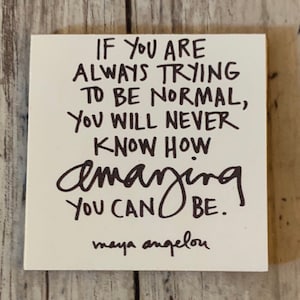 IF YOU ARE
ALWAYS TRYING
TO BE NORMAL,
YOU WILL NEVER
KNOW HOW
amazing
YOU CAN BE.
maya angelou